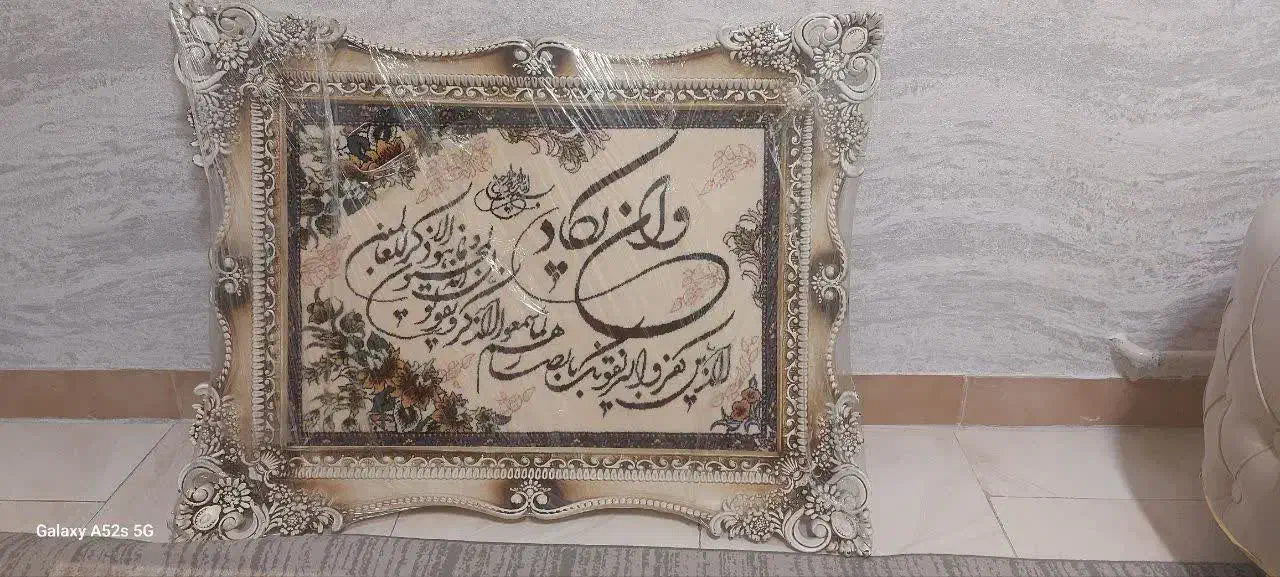 وان یکاد
الذین کفروا لیزلقونک بابصارهم
لما سمعوا الذکر و یقولون
انه لمجنون
و ما هو الا ذکر للعالمین
Galaxy A52s 5G